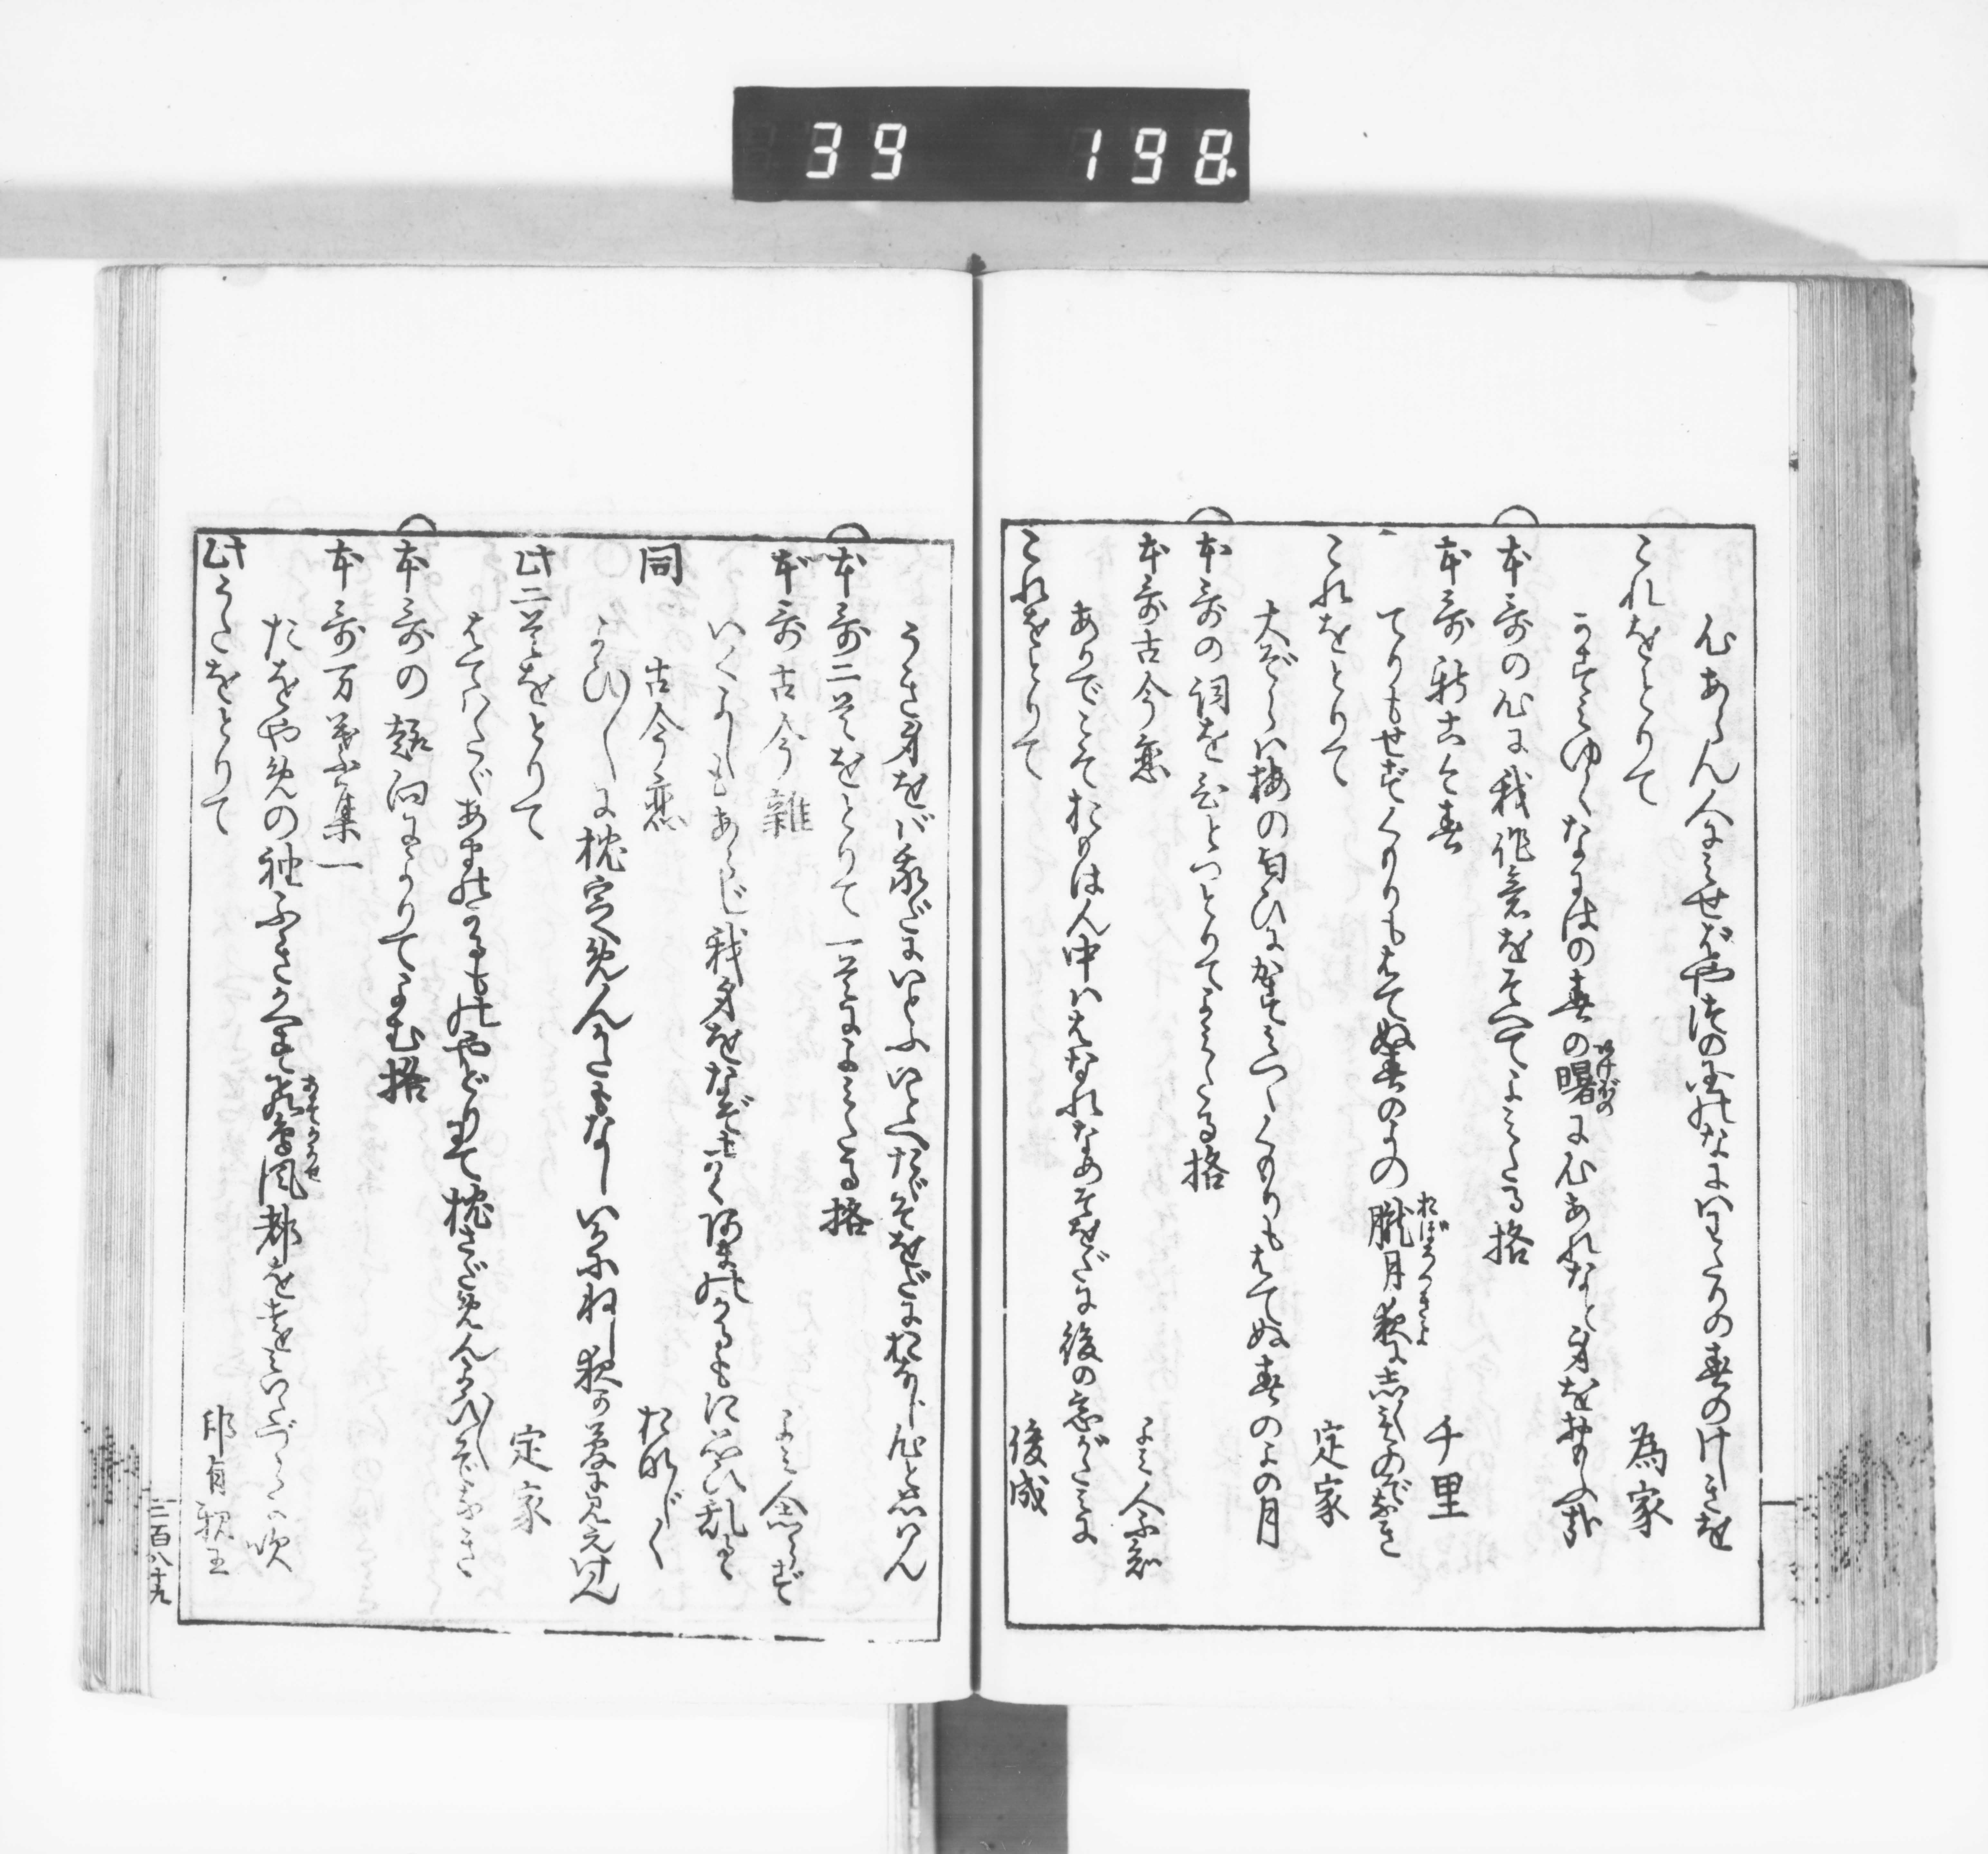 39 198
心あらん人にみせばや津の国のなにはわたりの春のけしきを
これをとりて 為家
うきみゆくなにはの春の曙に心あれなと身を
あけぼの
本哥の心に我作意をそへてよみたる格
本哥 新古今春 千里
てりもせずくもりもはてぬ春のよの朧月夜にしくものぞなき
おぼろづきよ
これをとりて 定家
大ぞらは梅の匂ひにかすみつゝくもりもはてぬ春のよの月
本哥の詞を句ひとつとりてよみたる格
本哥古今恋 よみ人不知
ありでこそおもはん中ははなれなめそをだに後の忘がたみに
これをとりて 俊成
うき身をば我だにいとふいとへたゞそをだにおなじ心と思はん
本哥二首をとりて一首によみたる格
本哥古今雑 よみ人しらず
いくよしもあらじ我身をなぞもかくあまのかるもに思ひ乱るゝ
同 古今恋 おなじく
よひ〳〵に枕定めんかたもなしいかにねし夜か夢に見えけん
此二首をとりて 定家
はてはたゞあまのかるもをやどりにて枕さだめんよひ〳〵ぞなき
本哥の趣向によりてよむ格
本哥万葉集一
たをやめの袖ふきかへす飛鳥風都を遠みいたづらに吹
あすかかぜ
此うたをとりて 邦省親王
二百八十九